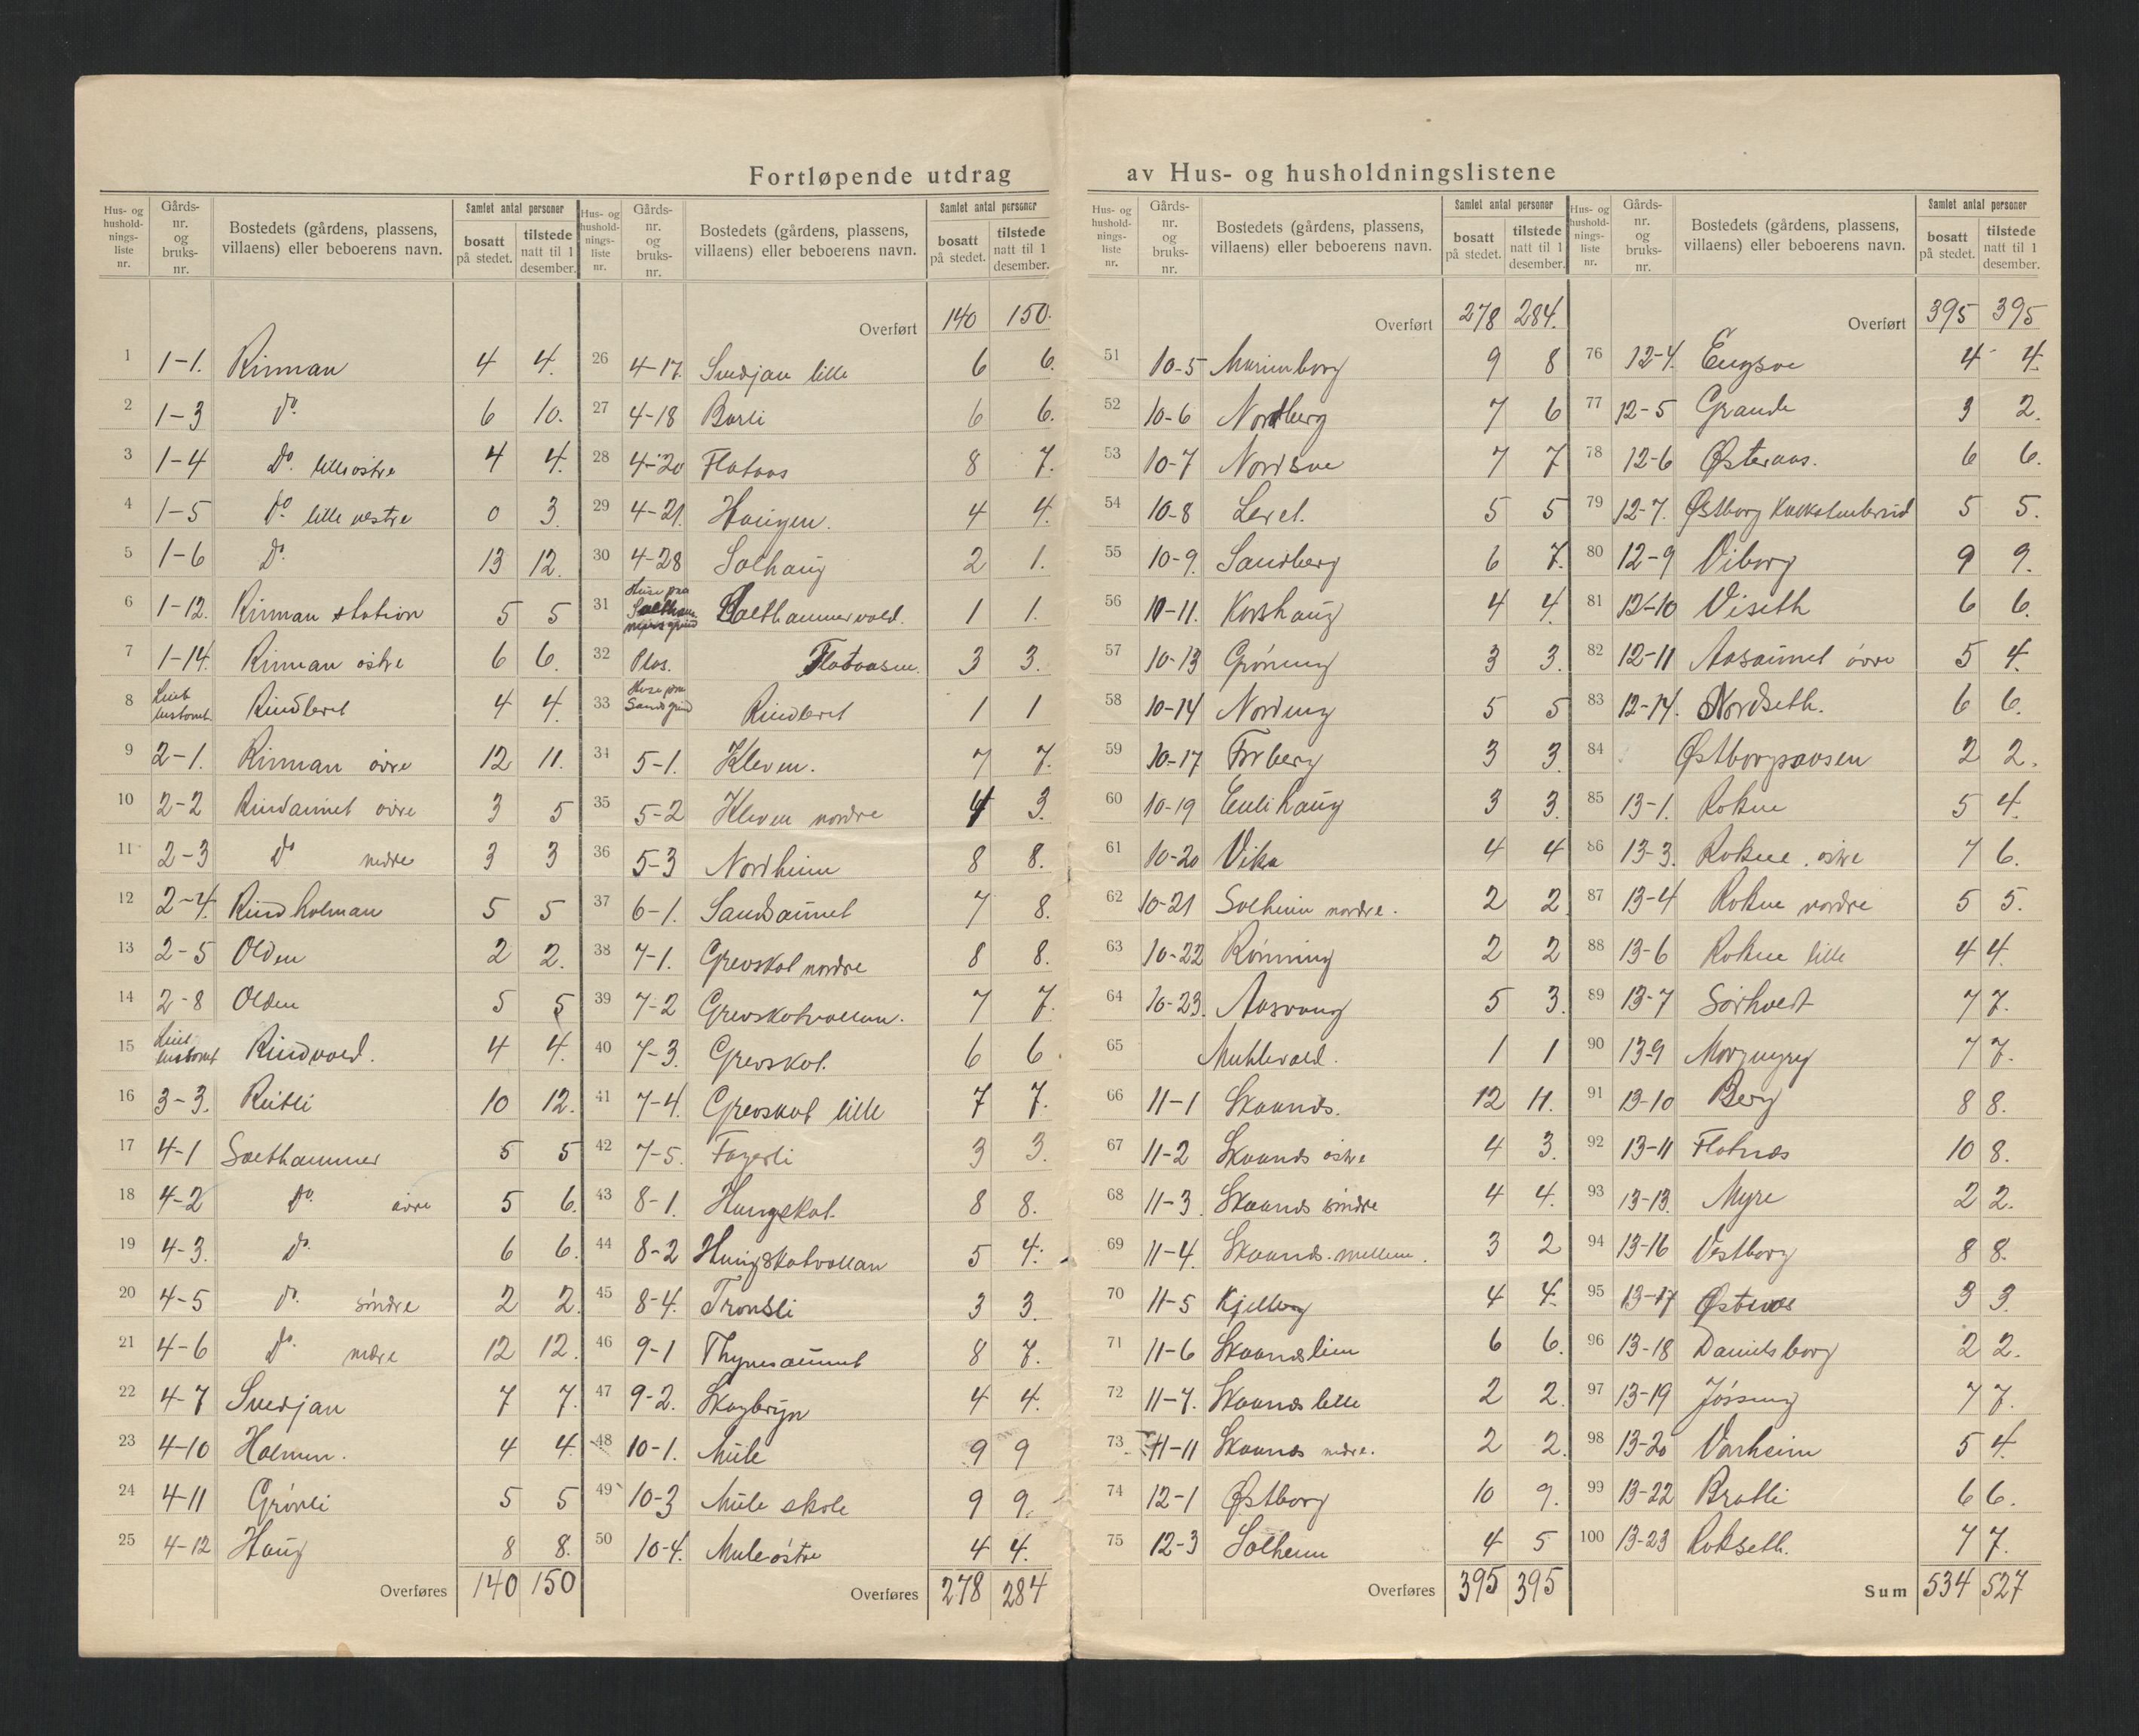 Fortløpende utdrag av Hus- og husholdningslistene
Hus- og husholdnings-liste nr. Gårds-nr. og bruks-nr. Bostedets (gårdens, plassens, villaens) eller beboerens navn. Samlet antal personer bosatt på stedet. tilstede natt til 1 desember.
1 1-1. Rinnan 4 4.
2 1-3 Do. 6 10.
3 1-4 Do. lille østre 4 4.
4 1-5 Do. lille vestre 0 3.
5 1-6 Do. 13 12.
6 1-12. Rinnan station 5 5
7 1-14. Rinnan østre 6 6.
8 Rindleret 4 4.
9 2-1. Rinnan øvre 12 11.
10 2-2 Rindaunet øvre 3 5
11 2-3 Do nedre 3 3
12 2-4. Rindholman 5 5
13 2-5 Olden 2 2.
14 2-8 Olden 5 5
15 Rindvold. 4 4.
16 3-3. Reitli 10 12.
17 4-1 Salthammer 5 5
18 4-2 Do. øvre 5 6.
19 4-3. Do. 6 6.
20 4-5 Do. søndre 2 2.
21 4-6 Do. nedre 12 12.
22 4-7 Svedjan 7 7.
23 4-10 Holmen. 4 4.
24 4-11 Grønli 5 5
25 4-12 Haug 8 8.
Overføres 140 150
Hus- og husholdnings-liste nr. Gårds-nr. og bruks-nr. Bostedets (gårdens, plassens, villaens) eller beboerens navn. Samlet antal personer bosatt på stedet. tilstede natt til 1 desember.
Overført 140 150.
26 4-17. Svedjan lille 6 6.
27 4-18 Borli 6 6.
28 4-20 Flotaas 8 7.
29 4-21. Haugen. 4 4.
30 4-28 Solhaug 2 1.
31 Salthammervold. 1 1.
32 Plas. Flataasen. 3 3.
33 Rindleret 1 1
34 5-1. Kleven. 7 7.
35 5-2 Kleven nordre 4 3.
36 5-3 Nordheim 8 8.
37 6-1. Sandaunet 7 8.
38 7-1. Grevskot nordre 8 8.
39 7-2 Grevskotvollan. 7 7.
40 7-3. Grevskot. 6 6
41 7-4. Grevskot lille 7 7.
42 7-5. Fagerli 3 3.
43 8-1. Hungskot. 8 8.
44 8-2 Hungskotvollan 5 4.
45 8-4. Tronsli 3 3
46 9-1 Thynesaunet 8 7.
47 9-2. Skogbryn 4 4.
48 10-1. Mule 9 9
49 10-3 Mule skole 9 9.
50 10-4. Mule østre 4 4.
Overføres 278 284
Hus- og husholdnings-liste nr. Gårds-nr. og bruks-nr. Bostedets (gårdens, plassens, villaens) eller beboerens navn. Samlet antal personer bosatt på stedet. tilstede natt til 1 desember.
Overført 278 284.
51 10-5 Marienborg 9 8
52 10-6 Nordberg 7 6
53 10-7 Nordsve 7 7
54 10-8 Leret. 5 5
55 10-9. Sandberg 6 7.
56 10-11. Korshaug 4 4.
57 10-13 Grønning 3 3.
58 10-14 Nordeng 5 5
59 10-17 Forberg 3 3.
60 10-19 Enlihaug 3 3.
61 10-20 Vika 4 4
62 10-21 Solheim nordre. 2 2.
63 10-22 Rønning 2 2
64 10-23. Aasvang 5 3.
65 Muhlevold. 1 1
66 11-1 Skaanes. 12 11.
67 11-2 Skaanes østre 4 3.
68 11-3. Skaanes søndre 4 4.
69 11-4. Skaanes mellem. 3 2
70 11-5 Kjelberg 4 4.
71 11-6 Skaaneslien 6 6.
72 11-7. Skaanes lille 2 2.
73 11-11 Skaanes nedre. 2 2.
74 12-1 Østborg 10 9.
75 12-3 Solheim 4 5
Overføres 395 395
Hus- og husholdnings-liste nr. Gårds-nr. og bruks-nr. Bostedets (gårdens, plassens, villaens) eller beboerens navn. Samlet antal personer bosatt på stedet. tilstede natt til 1 desember.
Overført 395 395
76 12-4. Engsve 4 4.
77 12-5 Grande 3 2.
78 12-6 Østeraas. 6 6.
79 12-7. Østborg 5 5.
80 12-9 Viborg 9 9.
81 12-10 Viseth 6 6.
82 12-11 Aasaunet øvre 5 4.
83 12-14. Nordseth. 6 6.
84 Østborgaasen 2 2.
85 13-1. Rokne 5 4.
86 13-3. Rokne østre 7 6.
87 13-4 Rokne nordre 5 5.
88 13-6 Rokne lille 4 4.
89 13-7 Sørholt 7 7.
90 13-9 7 7.
91 13-10 Berg 8 8.
92 13-11 Flotnes 10 8.
93 13-13. Myre 2 2.
94 13-16 Vestborg 8 8.
95 13-17 Østnes 3 3.
96 13-18 Danielsborg 2 2.
97 13-19 Jøssing 7 7.
98 13-20 Varheim 5 4.
99 13-22 Bratli 6 6.
100 13-23 Rokseth. 7 7.
Sum 534 527